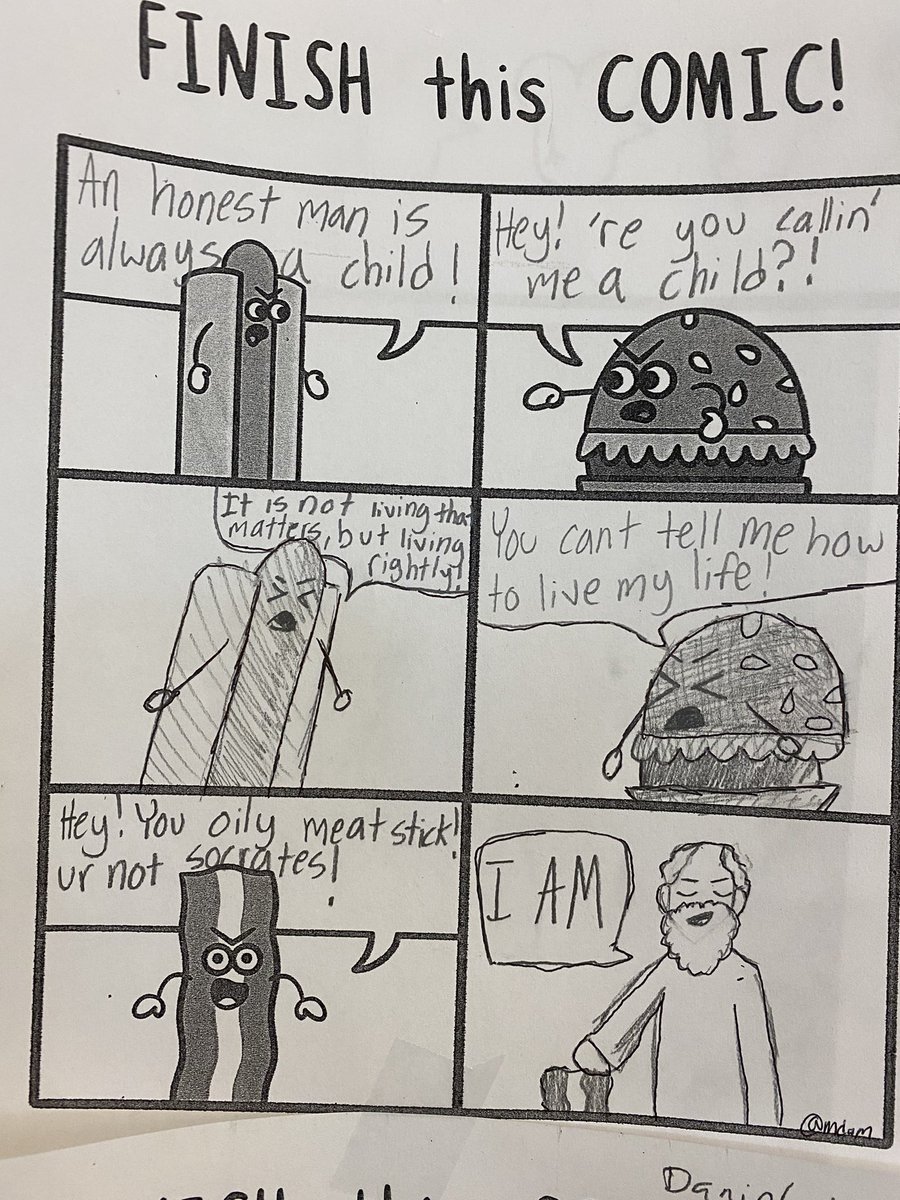 FINISH this COMIC!
An honest man is
always a child!
Hey! 're you callin'
me a child?!
It is not living that
matters, but living
rightly!
You cant tell me how
to live my life!
Hey! You oily meat stick!
ur not socrates!
I AM
@mdam